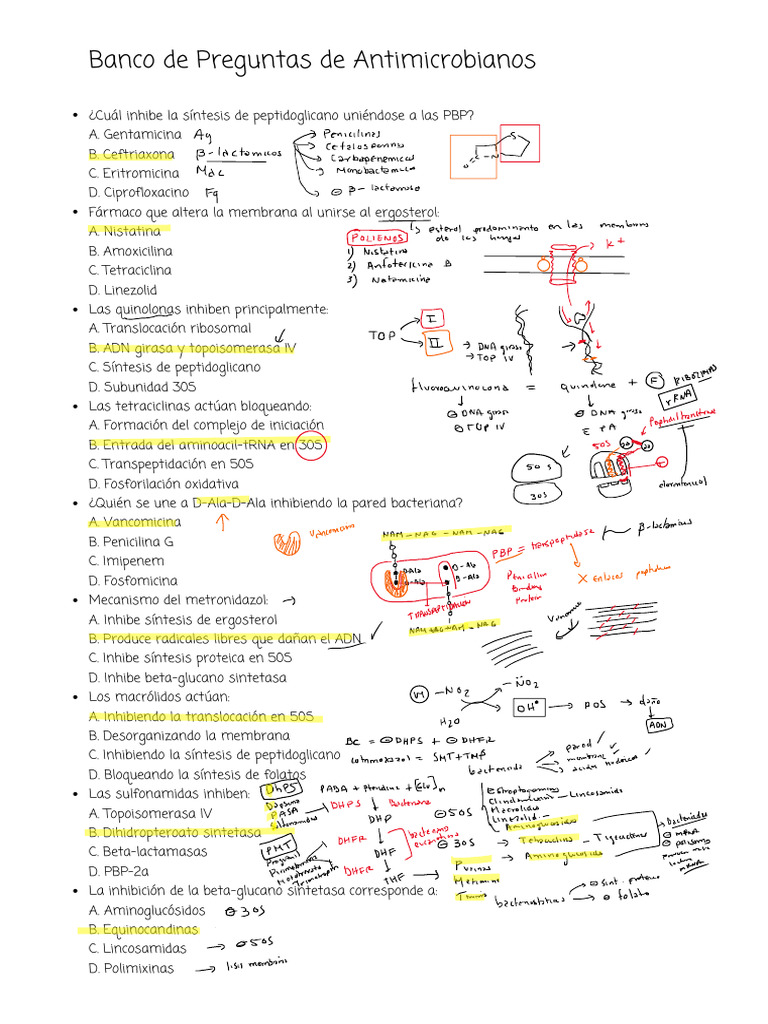 Banco de Preguntas de Antimicrobianos
• ¿Cuál inhibe la síntesis de peptidoglicano uniéndose a las PBP?
A. Gentamicina Ag
B. Ceftriaxona β-lactamicos
C. Eritromicina Mac
D. Ciprofloxacino Fq
Penicilinas
Carbapenemicos
Monobactamicos
⊖ β-lactamasa
S
O=C-N
• Fármaco que altera la membrana al unirse al ergosterol:
A. Nistatina
B. Amoxicilina
C. Tetraciclina
D. Linezolid
esterol predominante en las membrana
de los hongos
POLIENOS
1) Nistatina
2) Anfotericina B
3) Natamicina
K+
• Las quinolonas inhiben principalmente:
A. Translocación ribosomal
B. ADN girasa y topoisomerasa IV
C. Síntesis de peptidoglicano
D. Subunidad 30S
TOP
I
II
→ DNA girasa
→ TOP IV
fluoroquinolona = quinolona + F
⊖ DNA girasa
⊖ TOP IV
⊖ DNA girasa
rRNA
• Las tetraciclinas actúan bloqueando:
A. Formación del complejo de iniciación
B. Entrada del aminoacil-tRNA en 30S
C. Transpeptidación en 50S
D. Fosforilación oxidativa
50S
30S
50S
• ¿Quién se une a D-Ala-D-Ala inhibiendo la pared bacteriana?
A. Vancomicina
B. Penicilina G
C. Imipenem
D. Fosfomicina
Vancomicina
NAM-NAG-NAM-NAG
PBP = transpeptidasa
β-lactamicos
D-Ala
D-Ala
D-Ala
D-Ala
Penicillin
binding
protein
X Enlaces peptidicos
TRANSPEPTIDACION
NAM-NAG-NAM-NAG
• Mecanismo del metronidazol: →
A. Inhibe síntesis de ergosterol
B. Produce radicales libres que dañan el ADN
C. Inhibe síntesis proteica en 50S
D. Inhibe beta-glucano sintetasa
-NO2
-NO2
H2O
OH•
→ ROS → daño
ADN
• Los macrólidos actúan:
A. Inhibiendo la translocación en 50S
B. Desorganizando la membrana
C. Inhibiendo la síntesis de peptidoglicano
D. Bloqueando la síntesis de folatos
BC = ⊖DHPS + ⊖DHFR
cotrimoxazol = SMT+TMP
bactericida
pared
membrana
acidos nucleicos
• Las sulfonamidas inhiben:
A. Topoisomerasa IV
B. Dihidropteroato sintetasa
C. Beta-lactamasas
D. PBP-2a
DhPS
PABA + Pteridina + [Glu]n
Dapsona
PASA
Sulfonamidas
DHPS
Bacteriana
DHP
PMT
Proguanil
Pirimetamina
Trimetoprim
DHFR
DHF
DHFR
THF
⊖50S
Estreptograminas
Clindamicina - Lincosamidas
Macrolidos
Linezolid
Aminoglucosidos
⊖ 30S
Tetraciclina - Tigeciclina
Aminoglucosidos
Purinas
Metionina
Timina
bacteriostaticos
⊖ sint. proteica
⊖ folato
• La inhibición de la beta-glucano sintetasa corresponde a:
A. Aminoglucósidos ⊖30S
B. Equinocandinas
C. Lincosamidas → ⊖50S
D. Polimixinas → lisis membrana